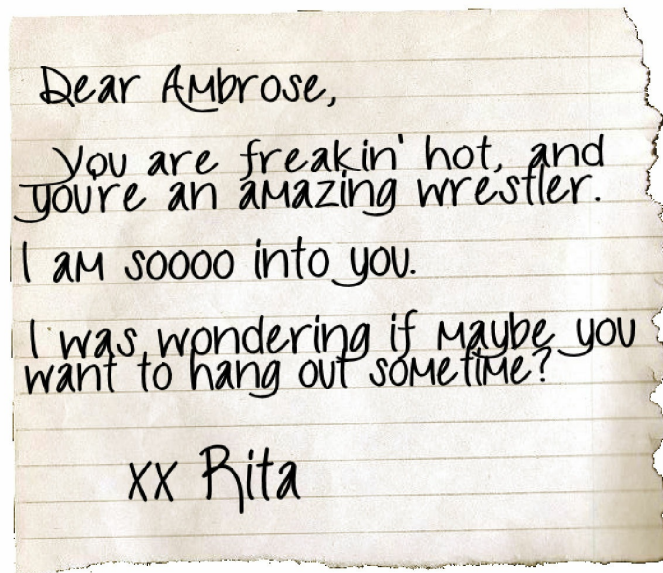 Dear Ambrose,
You are freakin' hot, and
youre an amazing wrestler.
I am soooo into you.
I was wondering if maybe you
want to hang out sometime?
xx Rita